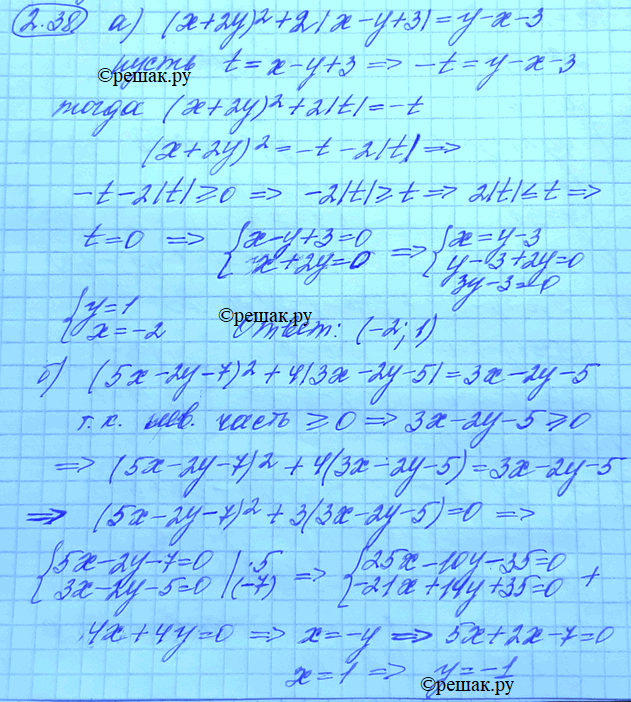 2.38 а) (x+2y)²+2|x-y+3|=y-x-3
пусть t=x-y+3 => -t=y-x-3
©решак.ру
тогда (x+2y)²+2|t|=-t
(x+2y)²=-t-2|t| =>
-t-2|t|≥0 => -2|t|≥t => 2|t|≤t =>
t=0 => {x-y+3=0 => {x=y-3
x+2y=0 y-3+2y=0
3y-3=0
{y=1 ©решак.ру
x=-2 Ответ: (-2; 1)
б) (5x-2y-7)²+4|3x-2y-5|=3x-2y-5
т.к. лев. часть ≥0 => 3x-2y-5≥0
=> (5x-2y-7)²+4(3x-2y-5)=3x-2y-5
=> (5x-2y-7)²+3(3x-2y-5)=0 =>
{5x-2y-7=0 |·5 => {25x-10y-35=0 +
3x-2y-5=0 |(-7) -21x+14y+35=0
4x+4y=0 => x=-y => 5x+2x-7=0
x=1 => y=-1
©решак.ру